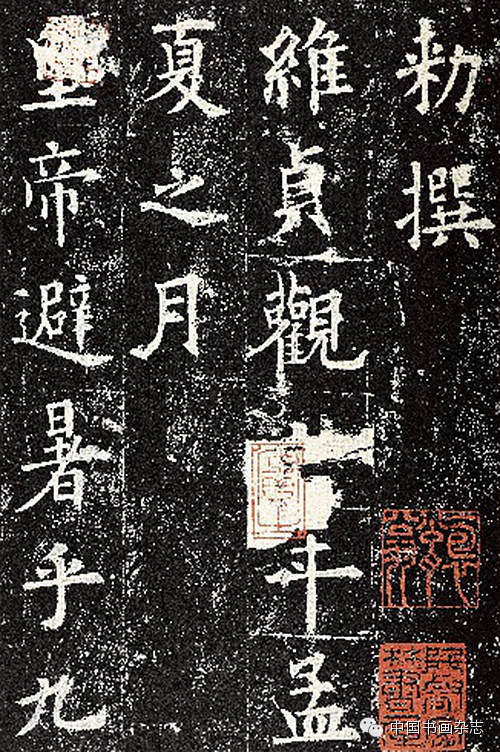 勑撰
維貞觀年孟
夏之月
皇帝避暑乎九
中国书画杂志